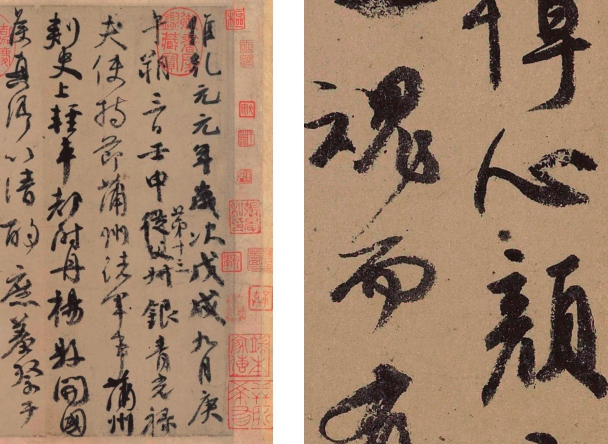 維乾元元年歲次戊戌九月庚
午朔三日壬申第十三從父叔銀青光祿
夫使持節蒲州諸軍事蒲州
刺史上輕車都尉丹楊縣開國
侯真卿以清酌庶羞祭于
悼心顏
魂而有